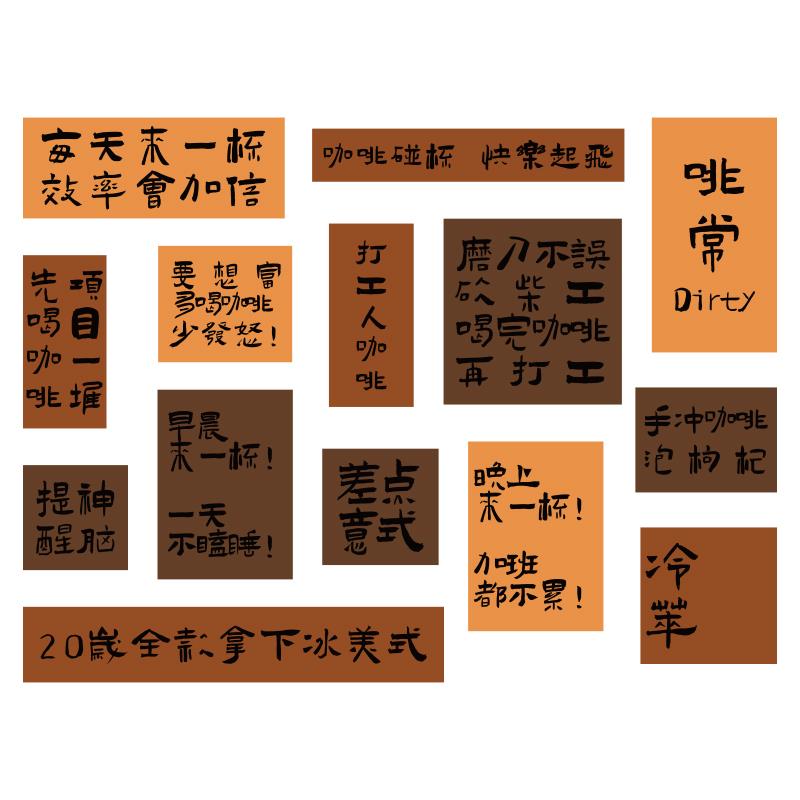 每天來一杯
效率會加信
咖啡碰杯 快樂起飛
啡
常
Dirty
先喝咖啡
項目一堆
要想富
多喝咖啡
少發怒!
打工人咖啡
磨刀不誤
砍柴工
喝完咖啡
再打工
手冲咖啡
泡枸杞
早晨
來一杯!
一天
不瞌睡!
提神
醒脑
差点
意式
晚上
來一杯!
加班
都不累!
冷
萃
20歲全款拿下冰美式